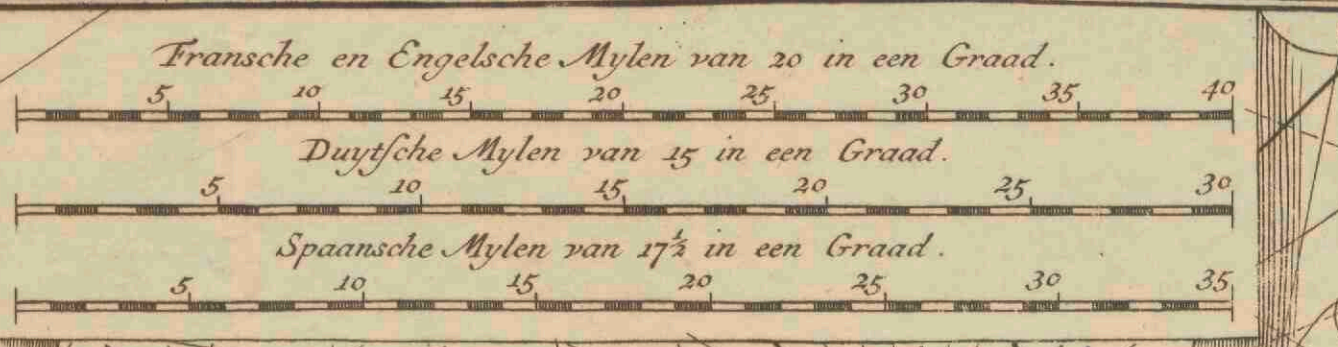 Fransche en Engelsche Mylen van 20 in een Graad.
5 10 15 20 25 30 35 40
Duytsche Mylen van 15 in een Graad.
5 10 15 20 25 30
Spaansche Mylen van 17½ in een Graad.
5 10 15 20 25 30 35